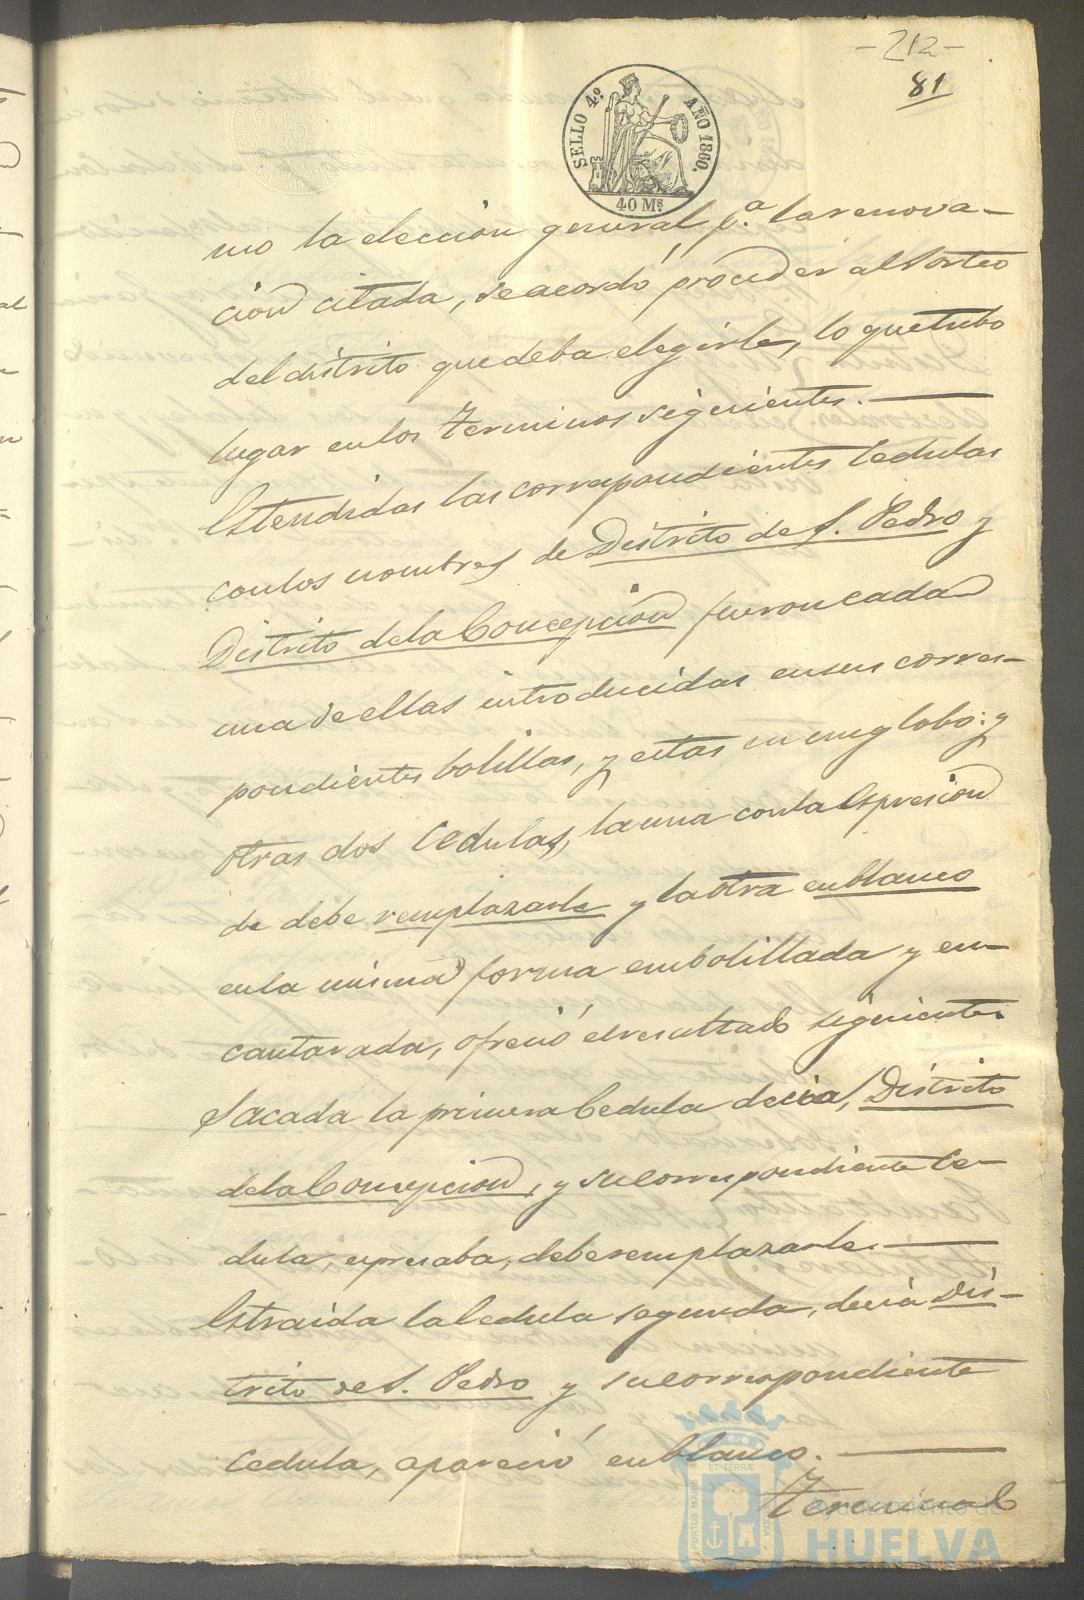 -212-
81
SELLO 4º AÑO 1860.
40 Ms
mo la eleccion general p.ª la renova-
cion citada, se acordó proceder al sorteo
del distrito que deba elegirle, lo que tubo
lugar en los terminos siguientes.
Estendidas las correspondientes Cedulas
con los nombres de Distrito de S. Pedro y
Distrito de la Concepcion fueron cada
una de ellas introducidas en sus corres-
pondientes bolillas, y estas en un globo: y
otras dos Cedulas, la una con la espresion
de debe remplazarle y la otra en blanco
en la misma forma embolillada y en-
cantarada, ofreció el resultado siguiente.
Sacada la primera Cedula decia, Distrito
de la Concepcion, y su correspondiente Ce-
dula, espresaba, debe remplazarle.
Estraida la Cedula segunda, decia Dis-
trito de S. Pedro y su correspondiente
Cedula, apareció en blanco.
PORTUS MARIS ET TERRAE
Ayuntamiento de
HUELVA